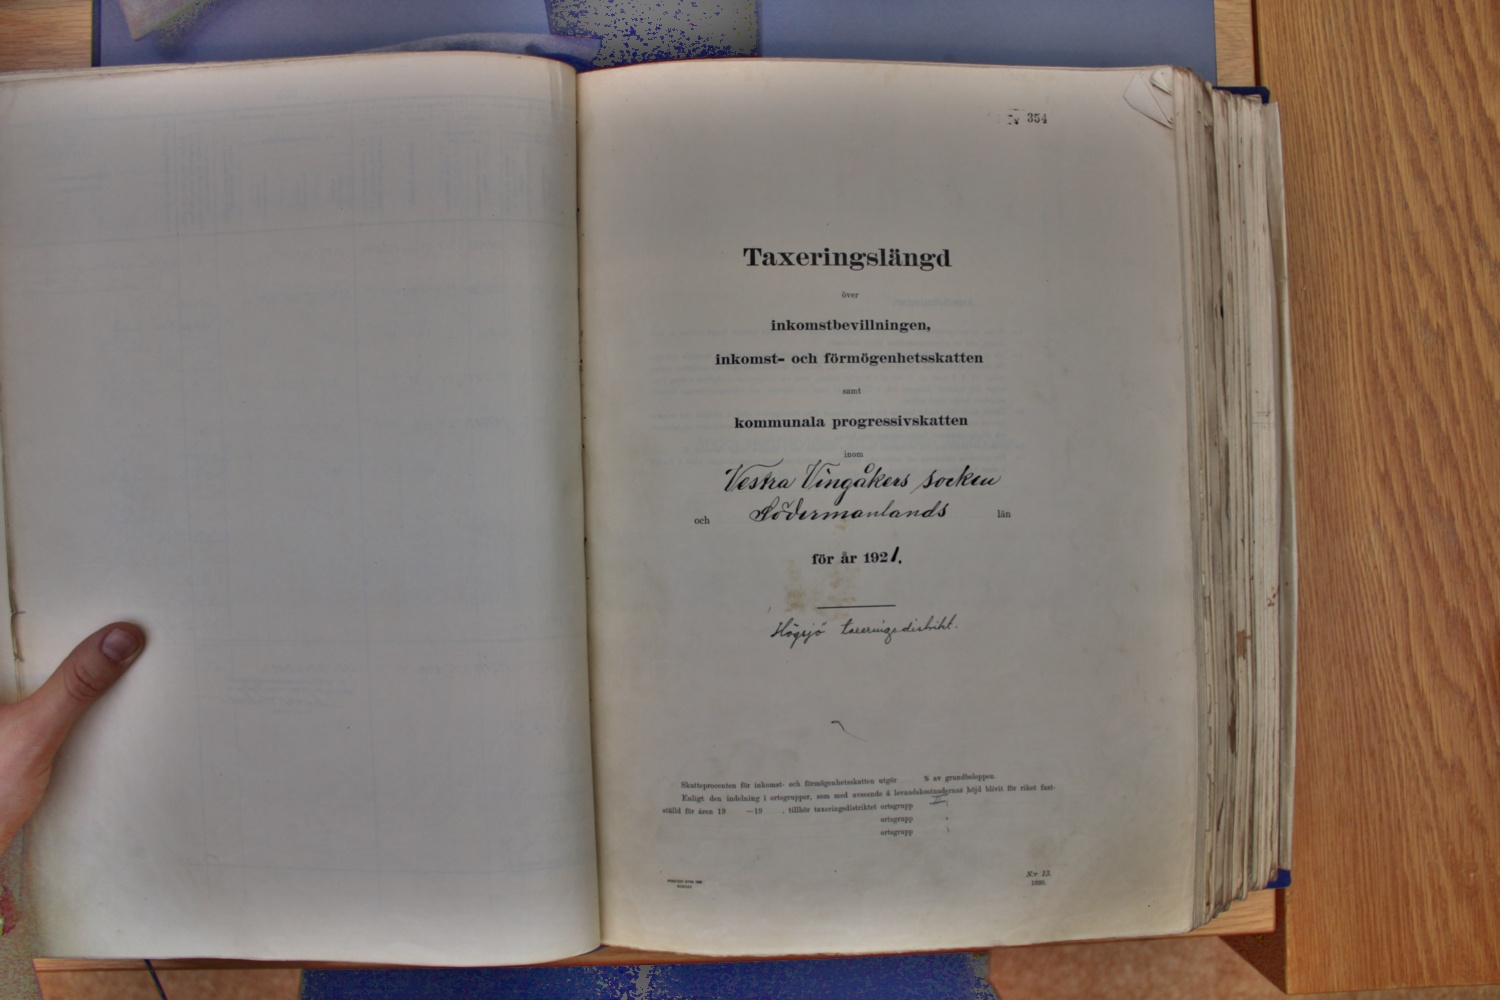 354
Taxeringslängd
över
inkomstbevillningen,
inkomst- och förmögenhetsskatten
samt
kommunala progressivskatten
inom
Vestra Vingåkers socken
och Södermanlands län
för år 1921.
Högsjö taxeringsdistrikt.
Skatteprocenten för inkomst- och förmögenhetsskatten utgör % av grundbeloppen.
Enligt den indelning i ortsgrupper, som med avseende å levnadskostnadernas höjd blivit för riket fast-
ställd för åren 19 —19 , tillhör taxeringsdistriktet ortsgrupp
ortsgrupp
ortsgrupp
N:r 13.
1920.